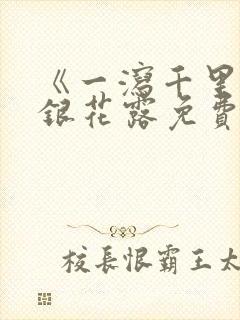 《一瀉千里
銀花露免費
校長恨霸王太